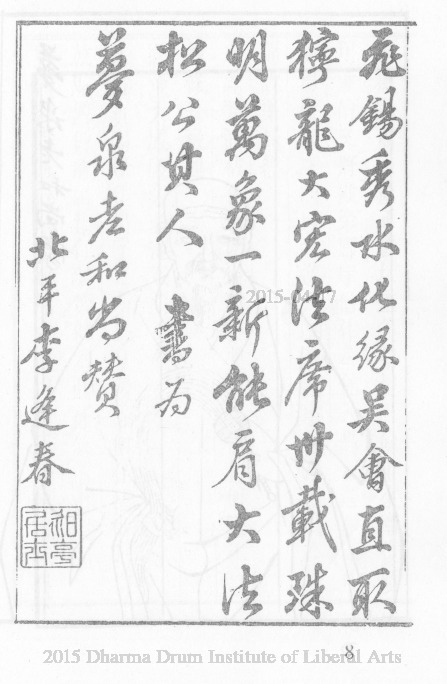 飛錫秀水化緣吳會直取
獰龍大宏法席卅載珠
明萬象一新能肩大法
松公其人 書為
夢泉老和尚贊
北平李逢春
2015-04-17
8
2015 Dharma Drum Institute of Liberal Arts